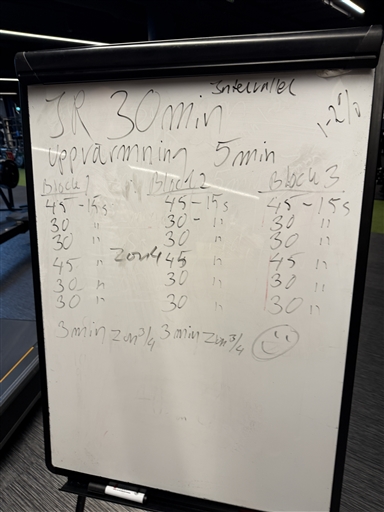 Intervaller
JR 30min
1-2%
uppvärmning 5min
Block 1 Block 2 Block 3
45-15s 45-15s 45-15s
30 " 30- " 30 "
30 " 30 " 30 "
45 " zon 4 45 " 45 "
30 " 30 " 30 "
30 " 30 " 30 "
3min zon 3/4 3min zon 3/4